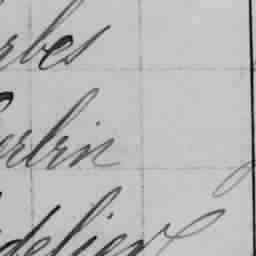 rbes
erlin
delier